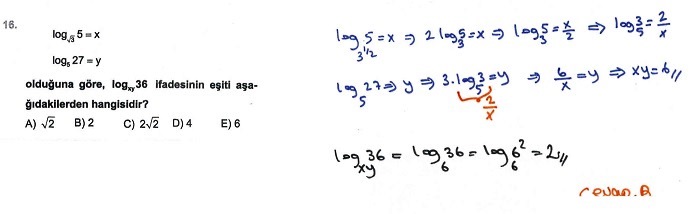 16.
log√3 5 = x
log5 27 = y
olduğuna göre, logxy 36 ifadesinin eşiti aşa-
ğıdakilerden hangisidir?
A) √2 B) 2 C) 2√2 D) 4 E) 6
log3^1/2 5 = x ⇒ 2 log3 5 = x ⇒ log3 5 = x/2 ⇒ log5 3 = 2/x
log5 27 ⇒ y ⇒ 3.log5 3 = y ⇒ 6/x = y ⇒ xy = 6//
2/x
logxy 36 = log6 36 = log6 6^2 = 2//